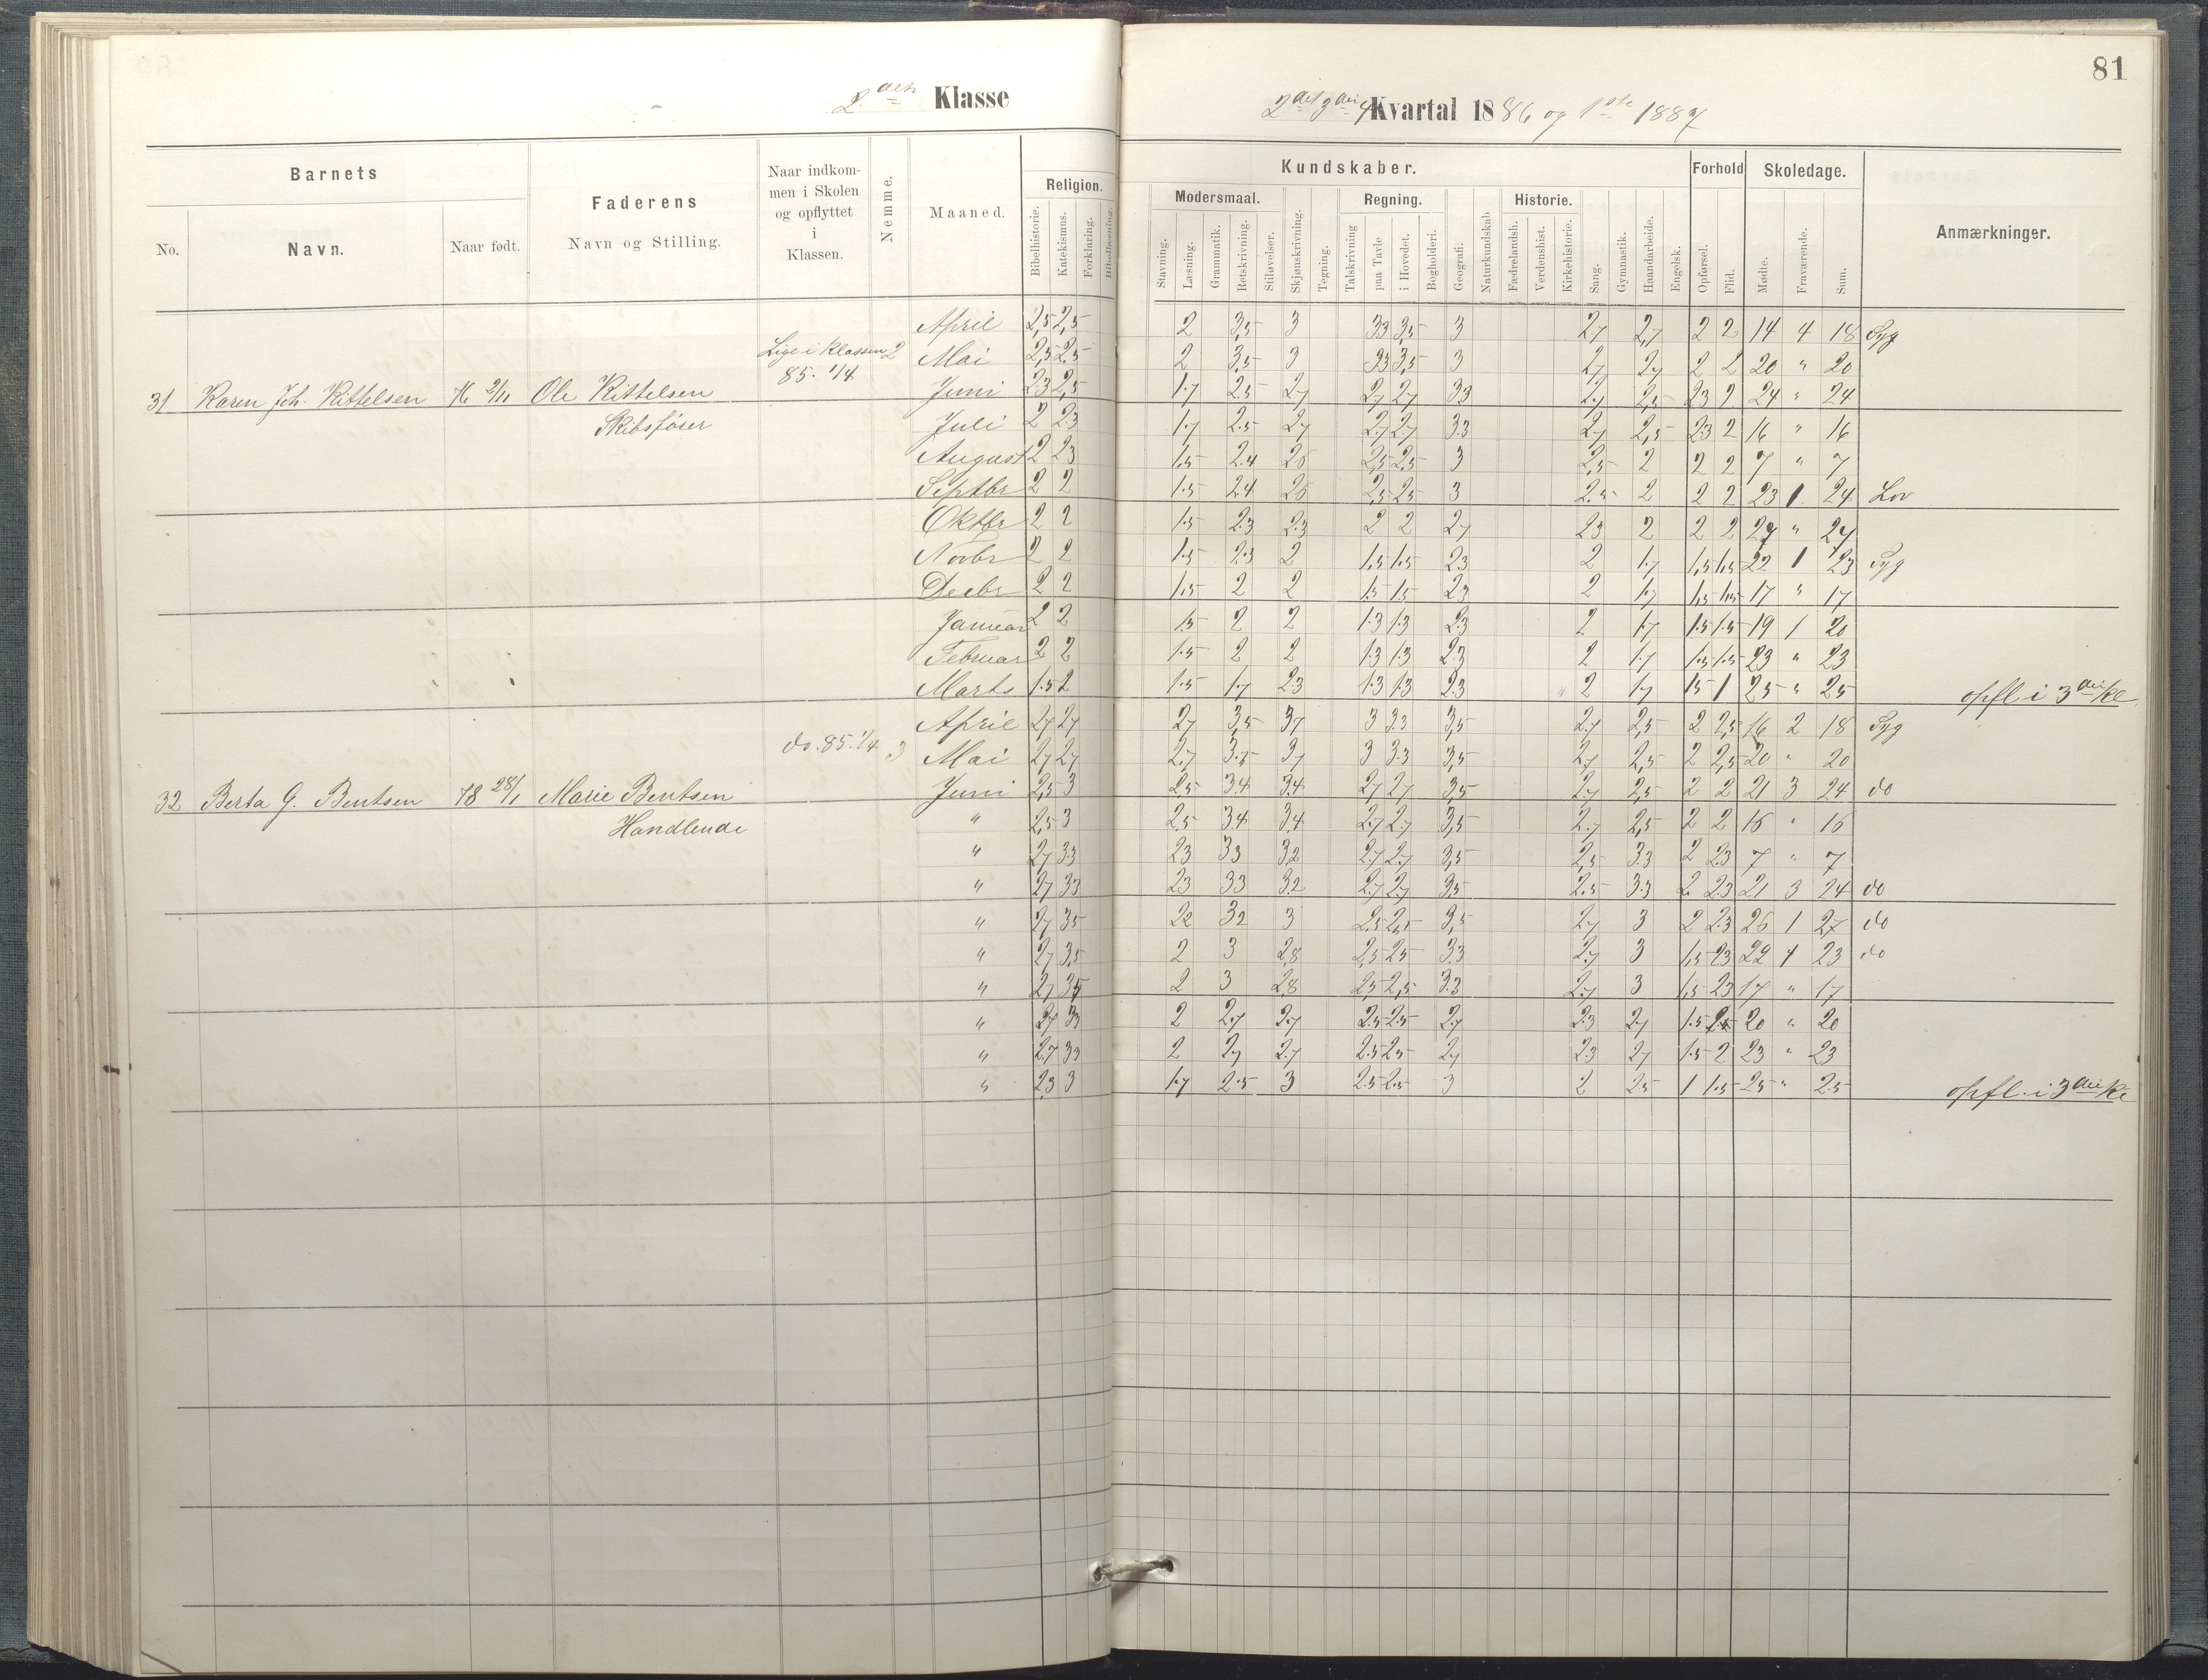 81
2den Klasse
2det 3die 4 Kvartal 1886 og 1ste 1887
Barnets
No.
Navn.
Naar født.
Faderens
Navn og Stilling.
Naar indkom-
men i Skolen
og opflyttet
i
Klassen.
Nemme.
Maaned.
Religion.
Bibelhistorie.
Katekismus.
Forklaring.
Bibellæsning.
Kundskaber.
Modersmaal.
Stavning.
Læsning.
Grammatik.
Retskrivning.
Stiløvelser.
Skjønskrivning.
Tegning.
Regning.
Talskrivning
paa Tavle
i Hovedet.
Bogholderi.
Geografi.
Naturkundskab
Historie.
Fædrelandsh.
Verdenshist.
Kirkehistorie.
Sang.
Gymnastik.
Haandarbeide.
Engelsk.
Forhold
Opførsel.
Flid.
Skoledage.
Mødte.
Fraværende.
Sum.
Anmærkninger.
April 2,5 2,5 2 3,5 3 33 3,5 3 2,7 2,7 2 2 14 4 18 Syg
Lige i Klassen 2 Mai 2,5 2,5 2 3,5 3 33 3,5 3 2,7 2,7 2 2 20 " 20
85. 1/4
31 Karen Joh. Kittelsen 76 2/11 Ole Kittelsen Juni 2.3 2,5 1.7 2.5 2.7 2,7 2,7 3.3 2.7 2,5 23 2 24 " 24
Skibsfører Juli 2 2.3 1.7 2.5 2.7 2.7 2.7 3.3 2.7 2,5 2.3 2 16 " 16
August 2 23 1.5 2.4 26 2,5 2.5 3 2,5 2 2 2 7 " 7
Septbr 2 2 1.5 24 26 2,5 2.5 3 2.5 2 2 2 23 1 24 Lov
Oktbr 2 2 1.5 2.3 2.3 2 2 2.7 23 2 2 2 27 " 27
Novbr 2 2 1.5 2.3 2 1.5 1.5 23 2 1.7 1,5 1,5 22 1 23 Syg
Decbr 2 2 1.5 2 2 1.5 1.5 2.3 2 1.7 1,5 1.5 17 " 17
Januar 2 2 1.5 2 2 1.3 1.3 2.3 2 1.7 1.5 1.5 19 1 20
Februar 2 2 1.5 2 2 1.3 1.3 2.3 2 1.7 1.5 1.5 23 " 23
Marts 1.5 2 1.5 1.7 2.3 1.3 1.3 2.3 2 1.7 15 1 25 " 25 opfl i 3die Kl
April 2,7 2,7 2,7 3,5 37 3 3.3 3,5 2.7 2,5 2 2,5 16 2 18 Syg
do. 85. 1/4 3 Mai 2,7 2,7 2,7 3.5 37 3 3.3 3,5 2.7 2,5 2 2,5 20 " 20
32 Berta G. Bentsen 78 28/1 Marie Bentsen Juni 2,5 3 2.5 3.4 3.4 2,7 2,7 3,5 2.7 2,5 2 2 21 3 24 do
Handlende " 2,5 3 2.5 34 3,4 2.7 2.7 3,5 2.7 2,5 2 2 16 " 16
" 27 33 23 33 32 2.7 2.7 3,5 2,5 3.3 2 2.3 7 " 7
" 27 33 23 33 3.2 2.7 2.7 35 2.5 3.3 2 2.3 21 3 24 do
" 27 35 22 32 3 2,5 2,5 3,5 2.7 3 2 2.3 26 1 27 do
" 27 3,5 2 3 2,8 2,5 2.5 3.3 2.7 3 1,5 23 22 1 23 do
" 27 35 2 3 2,8 2.5 2,5 3.3 2.7 3 1,5 23 17 " 17
" 27 33 2 2.7 2.7 2.5 2.5 2.7 2.3 2.7 1.5 20 " 20
" 2.7 33 2 2.7 2.7 2.5 2.5 2.7 2.3 27 1.5 2 23 " 23
" 23 3 1.7 2.5 3 2.5 2.5 3 2 25 1 1.5 25 " 25 opfl. i 3die Kl